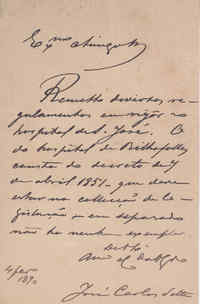 Ex.mo Amigo
Remetto diversos re-
gulamentos em vigor no
hospital de S. José. O
do hospital de Rilhafolles
consta do decreto de 7
de abril 1851, que deve
estar na collecção de le-
gislação e em separado
não ha nenhum exemplar.
De V.
Am.
4 fev
1890
José Carlos